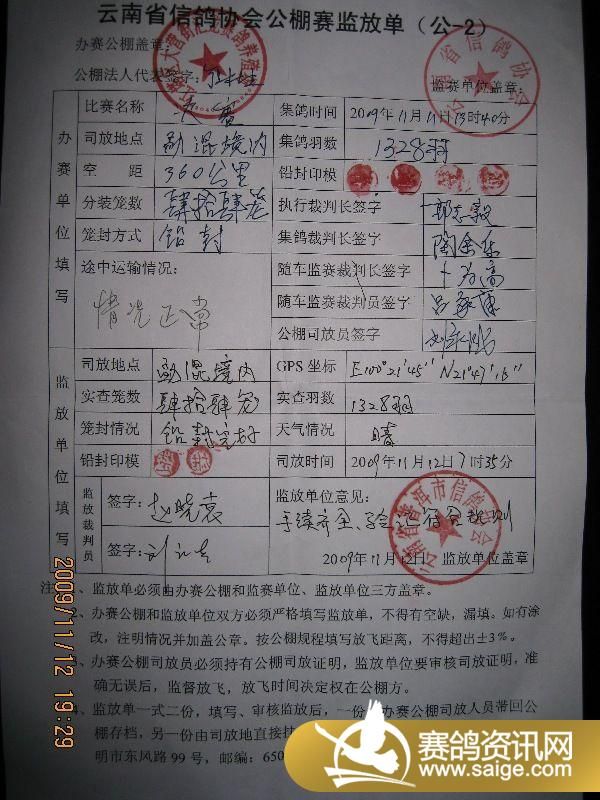 云南省信鸽协会公棚赛监放单（公-2）
办赛公棚盖章：
公棚法人代表签字：
监赛单位盖章：
云南省信鸽协会
办赛单位填写
比赛名称 大赛 集鸽时间 2009年11月11日13时40分
司放地点 勐混境内 集鸽羽数 1328羽
空 距 360公里 铅封印模
分装笼数 肆拾肆笼 执行裁判长签字
笼封方式 铅封 集鸽裁判长签字
途中运输情况： 随车监赛裁判长签字
情况正常 随车监赛裁判员签字
公棚司放员签字
监放单位填写
司放地点 勐混境内 GPS 坐标 E100°21'45" N21°47'15"
实查笼数 肆拾肆笼 实查羽数 1328羽
笼封情况 铅封完好 天气情况 晴
铅封印模 司放时间 2009年11月12日7时35分
监放裁判员 签字： 监放单位意见：
手续齐全、验证符合规则
签字： 2009年11月12日 监放单位盖章
云南省普洱市信鸽协会
注：1、监放单必须由办赛公棚和监赛单位、监放单位三方盖章。
2、办赛公棚和监放单位双方必须严格填写监放单，不得有空缺，漏填。如有涂
改，注明情况并加盖公章。按公棚规程填写放飞距离，不得超出±3%。
3、办赛公棚司放员必须持有公棚司放证明，监放单位要审核司放证明，准
确无误后，监督放飞，放飞时间决定权在公棚方。
4、监放单一式二份，填写、审核监放后，一份由办赛公棚司放人员带回公
棚存档，另一份由司放地直接
明市东风路 99 号，邮编：650
2009/11/12 19:29
赛鸽资讯网
www.saige.com